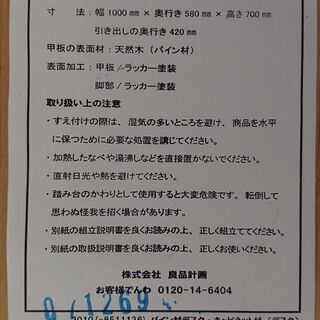 寸　法：幅1000㎜×奥行き580㎜×高さ700㎜
引き出しの奥行き420㎜
甲板の表面材：天然木（パイン材）
表面加工：甲板/ラッカー塗装
脚部/ラッカー塗装
取り扱い上の注意
・すえ付けの際は、湿気の多いところを避け、商品を水平
に保つために必要な処置を講じてください。
・加熱したなべや湯沸しなどを直接置かないでください。
・直射日光や熱を避けてください。
・踏み台のかわりとして使用すると大変危険です。転倒して
思わぬ怪我を招く場合があります。
・別紙の組立説明書を良くお読みの上、正しく組立ててください。
・別紙の取扱説明書を良くお読みの上、正しくお使いください。
株式会社　良品計画
お客様でんわ 0120-14-6404